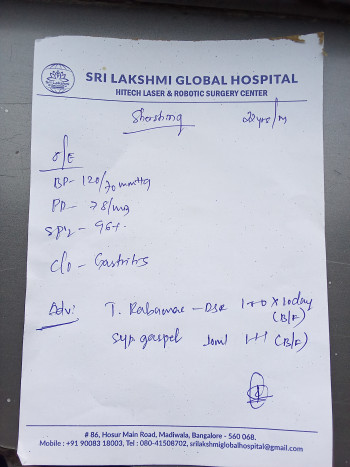 SRI LAKSHMI GLOBAL HOSPITAL
HITECH LASER & ROBOTIC SURGERY CENTER
22yrs/M
O/E
BP- 120/70 mmHg
PR- 78/mg
SPO2 - 96%.
C/O - Gastritis
Adv:
T. Rabamac - DSR 1+0 x 10day
(B/F)
Syp. gaspel 10ml 1-1-1 (B/F)
# 86, Hosur Main Road, Madiwala, Bangalore - 560 068.
Mobile : +91 90083 18003, Tel : 080-41508702, srilakshmiglobalhospital@gmail.com